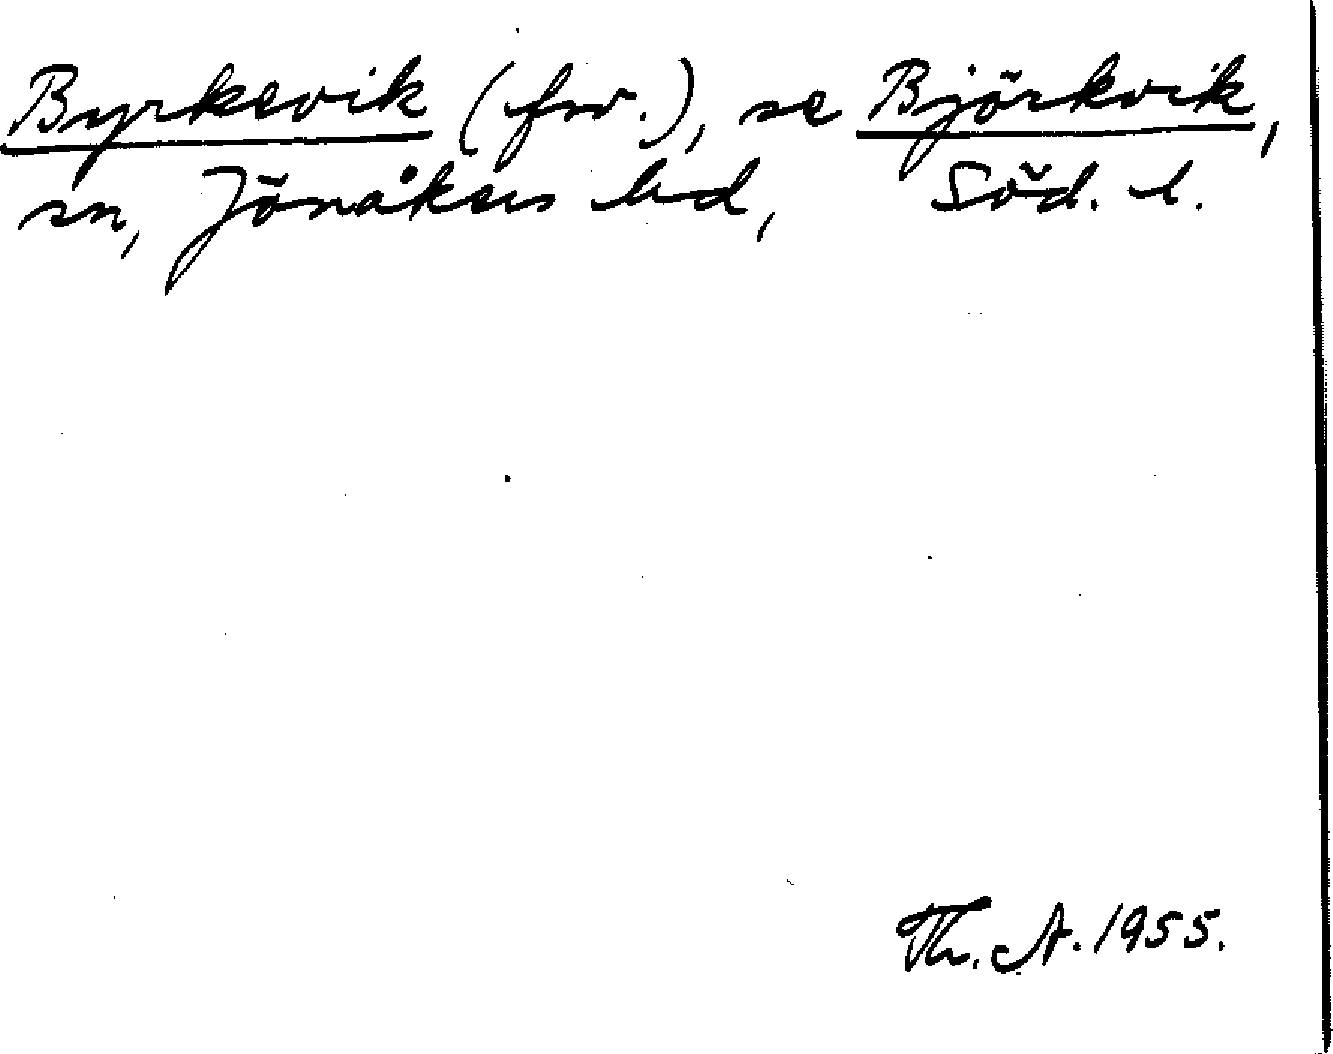 Byrkevik (fsv.), se Björkvik,
sn, Jönåkers hd, Söd. l.
Th. A. 1955.